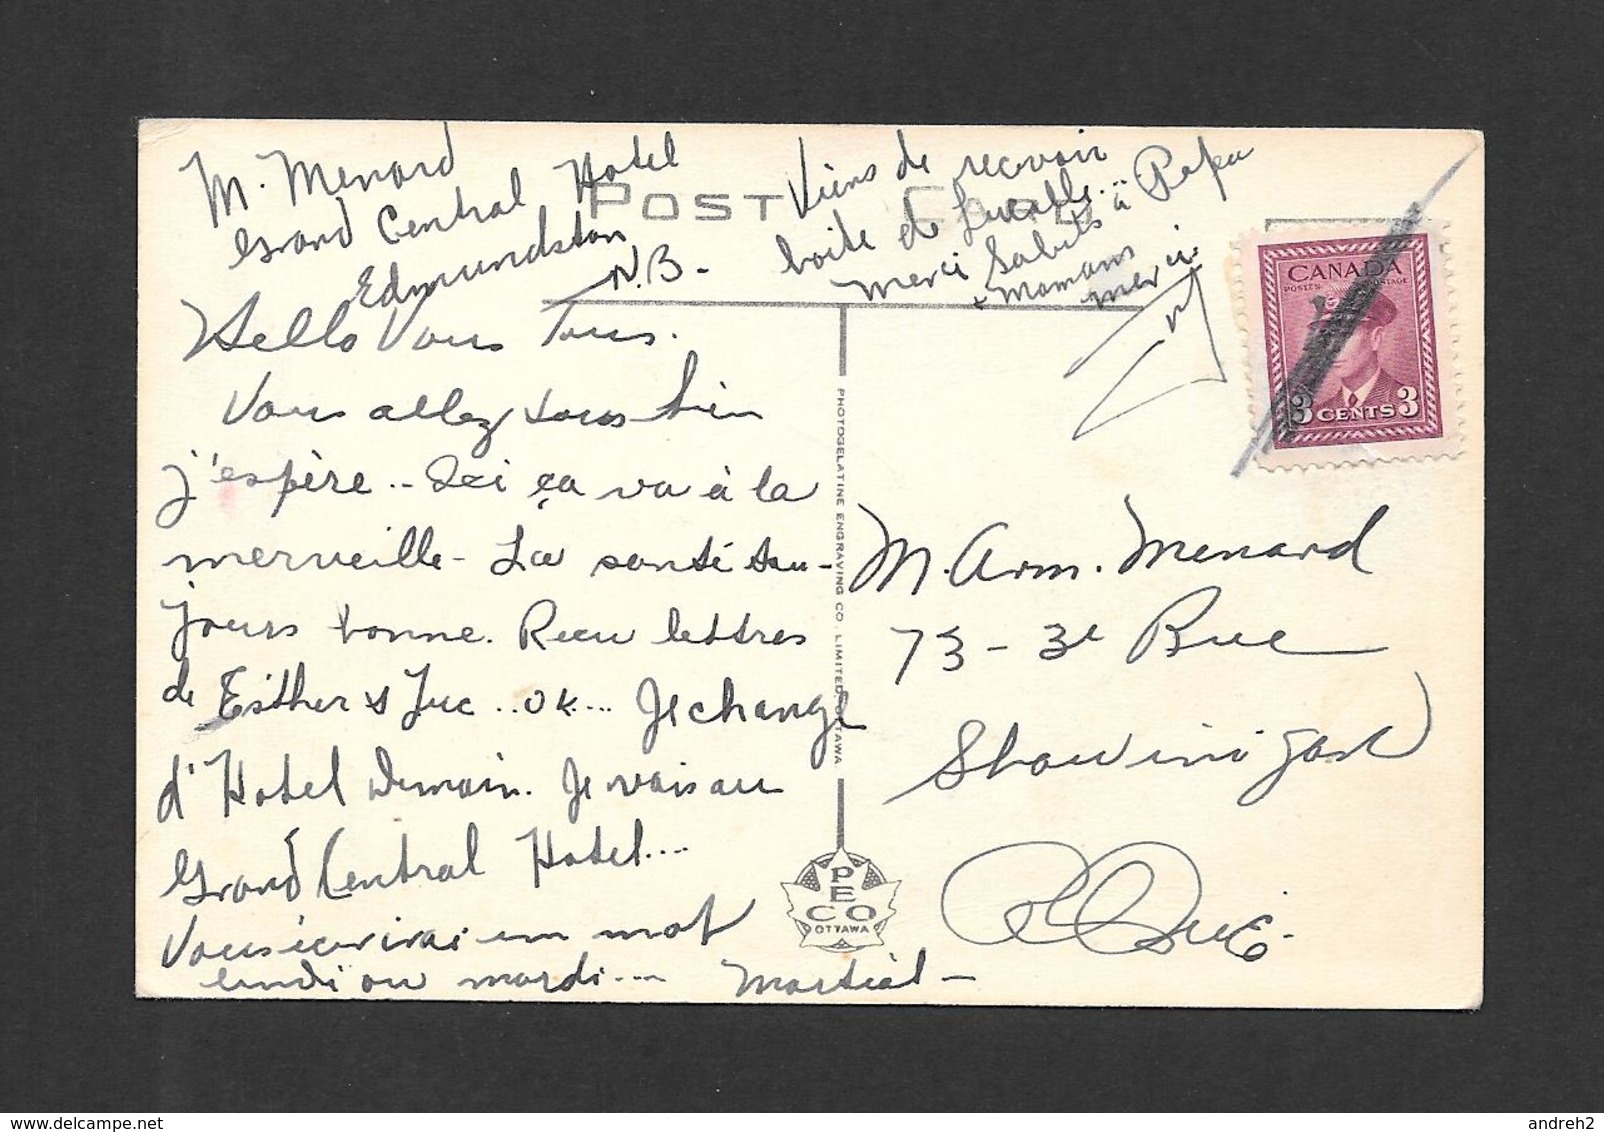 M. Menard
Grand Central Hotel
Edmundston
N.B-
POST CARD
Viens de recevoir
boite de
Merci Saluts à Papa
& Mamans
merci
Hello Vous Tous.
Vous allez tous bien
j'espère.. Ici ça va à la
merveille- La santé tou-
jours bonne. Recu lettres
de Esther & Luc ..OK... Je change
d'Hotel Demain. Je vais au
Grand Central Hotel....
Vous écrirai un mot
lundi ou mardi.... Martial-
PHOTOGELATINE ENGRAVING CO. LIMITED, OTTAWA
PECO
OTTAWA
CANADA
POSTES POSTAGE
3 CENTS 3
M. Arm. Menard
73-3e Rue
Shawinigan
Qué.
andreh2
delcampe.net